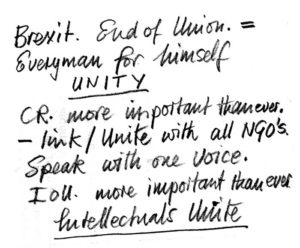 Brexit. End of Union. =
Everyman for himself
UNITY
CR. more important than ever.
- link / Unite with all NGO's.
Speak with one Voice.
IOU. more important than ever
Intellectuals Unite